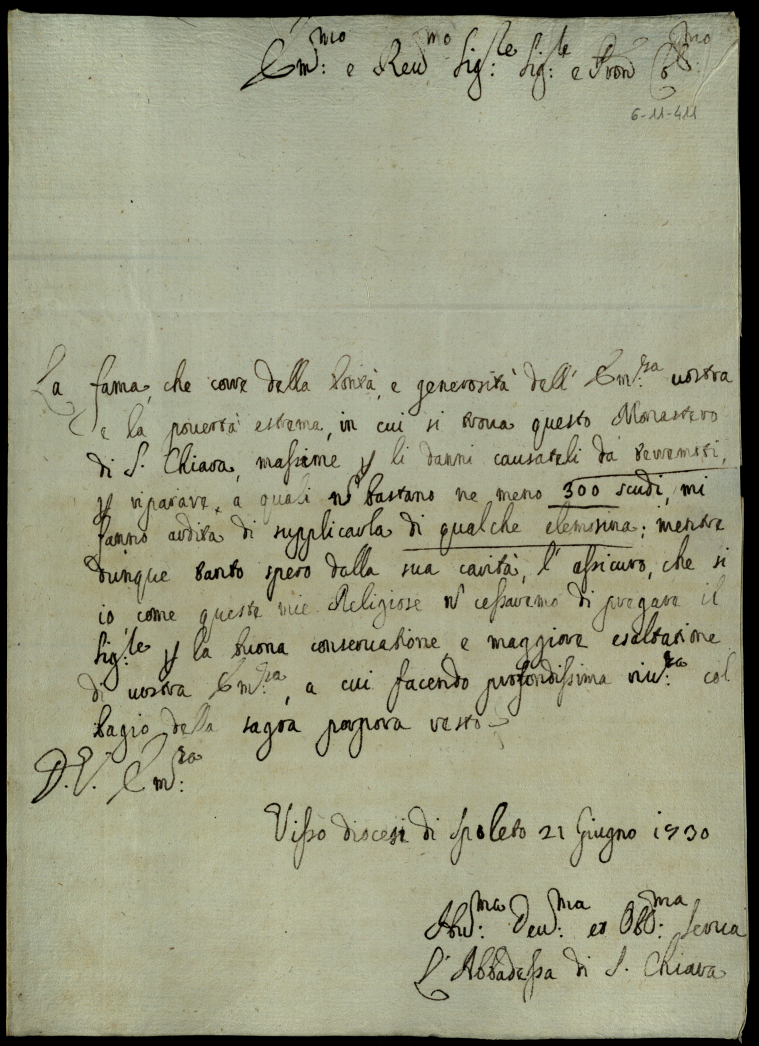 Em.mo e Reu.mo Sig.le Sig.le e Pron Co.mo
6-11-411
La fama, che corre della bontà, e generosità dell' Em.za uostra
e la pouertà estrema, in cui si troua questo Monastero
di S. Chiara, massime p li danni causateli da terremoti,
p riparare, a quali nō bastano ne meno 300 scudi, mi
fanno ardita di supplicarla di qualche elemosina; mentre
dunque tanto spero dalla sua carità, l' assicuro, che sì
io come queste mie Religiose nō cessaremo di pregare il
Sig.le p la buona conseruatione, e maggiore esaltatione
di uostra Em.za, a cui facendo profondissima riu.za col
bagio della sagra porpora resto
D. V. Em.za
Visso diocesi di Spoleto 21 Giugno 1730
Hu.ma Deu.ma et Obb.ma Serua
L' Abbadessa di S. Chiara